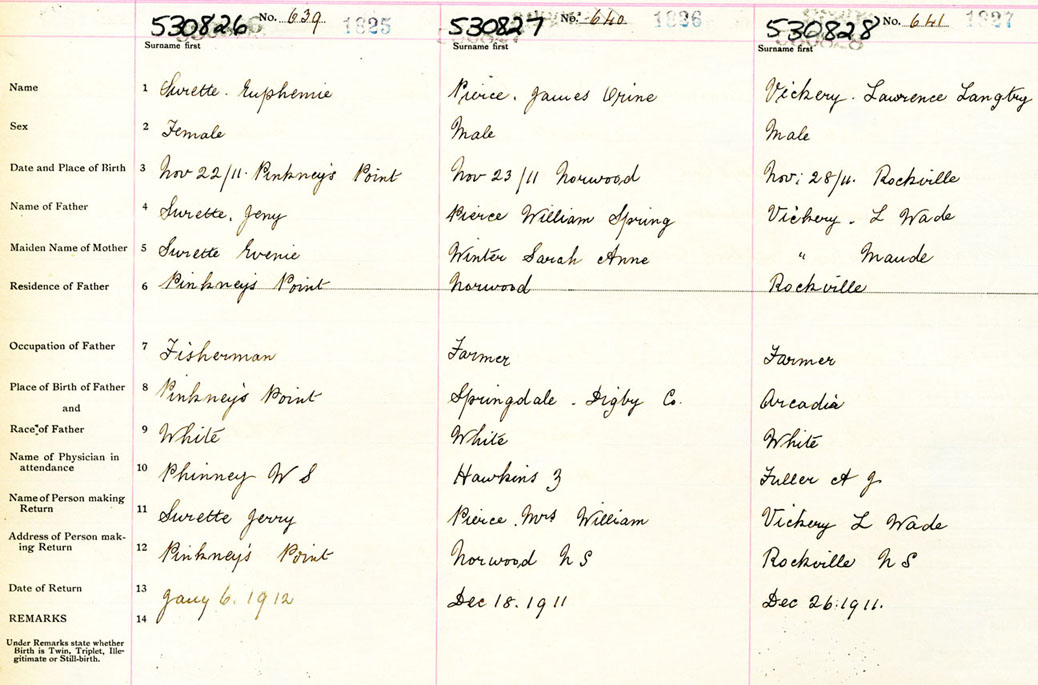 530826 No. 639 1825 530827 No. 640 1826 530828 No. 641 1827
Surname first Surname first Surname first
Name 1 Surette. Euphemie Pierce. James Orine Vickery. Lawrence Langtry
Sex 2 Female Male Male
Date and Place of Birth 3 Nov 22/11. Pinkney's Point Nov 23/11 Norwood Nov; 28/11. Rockville
Name of Father 4 Surette, Jeny Pierce William Spring Vickery. L Wade
Maiden Name of Mother 5 Surette Evenie Winter Sarah Anne " Maude
Residence of Father 6 Pinkney's Point Norwood Rockville
Occupation of Father 7 Fisherman Farmer Farmer
Place of Birth of Father 8 Pinkney's Point Springdale. Digby Co. Arcadia
and
Race of Father 9 White White White
Name of Physician in
attendance 10 Phinney W S Hawkins Z Fuller A J
Name of Person making
Return 11 Surette Jerry Pierce. Mrs William Vickery L Wade
Address of Person mak-
ing Return 12 Pinkney's Point Norwood N S Rockville N S
Date of Return 13 Jany 6. 1912 Dec 18. 1911 Dec 26. 1911.
REMARKS 14
Under Remarks state whether
Birth is Twin, Triplet, Ille-
gitimate or Still-birth.